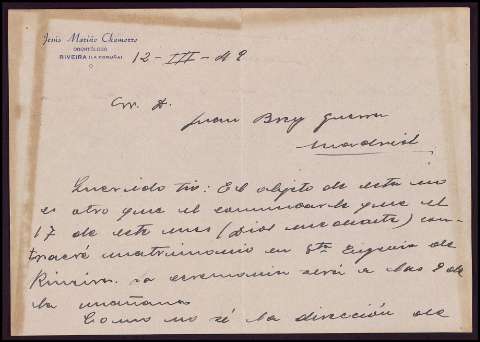 Jesús Mariño Chamorro
ODONTÓLOGO
RIVEIRA (LA CORUÑA)
12-III-49
Sr. D.
Juan Bsy Guerra
Madrid
Querido tio: El objeto de esta no
es otro que el comunicarle que el
17 de este mes (Dios mediante) con-
traeré matrimonio en Sta Eugenia de
Riveira. La ceremonia será a las 9 de
la mañana
Como no sé la dirección de